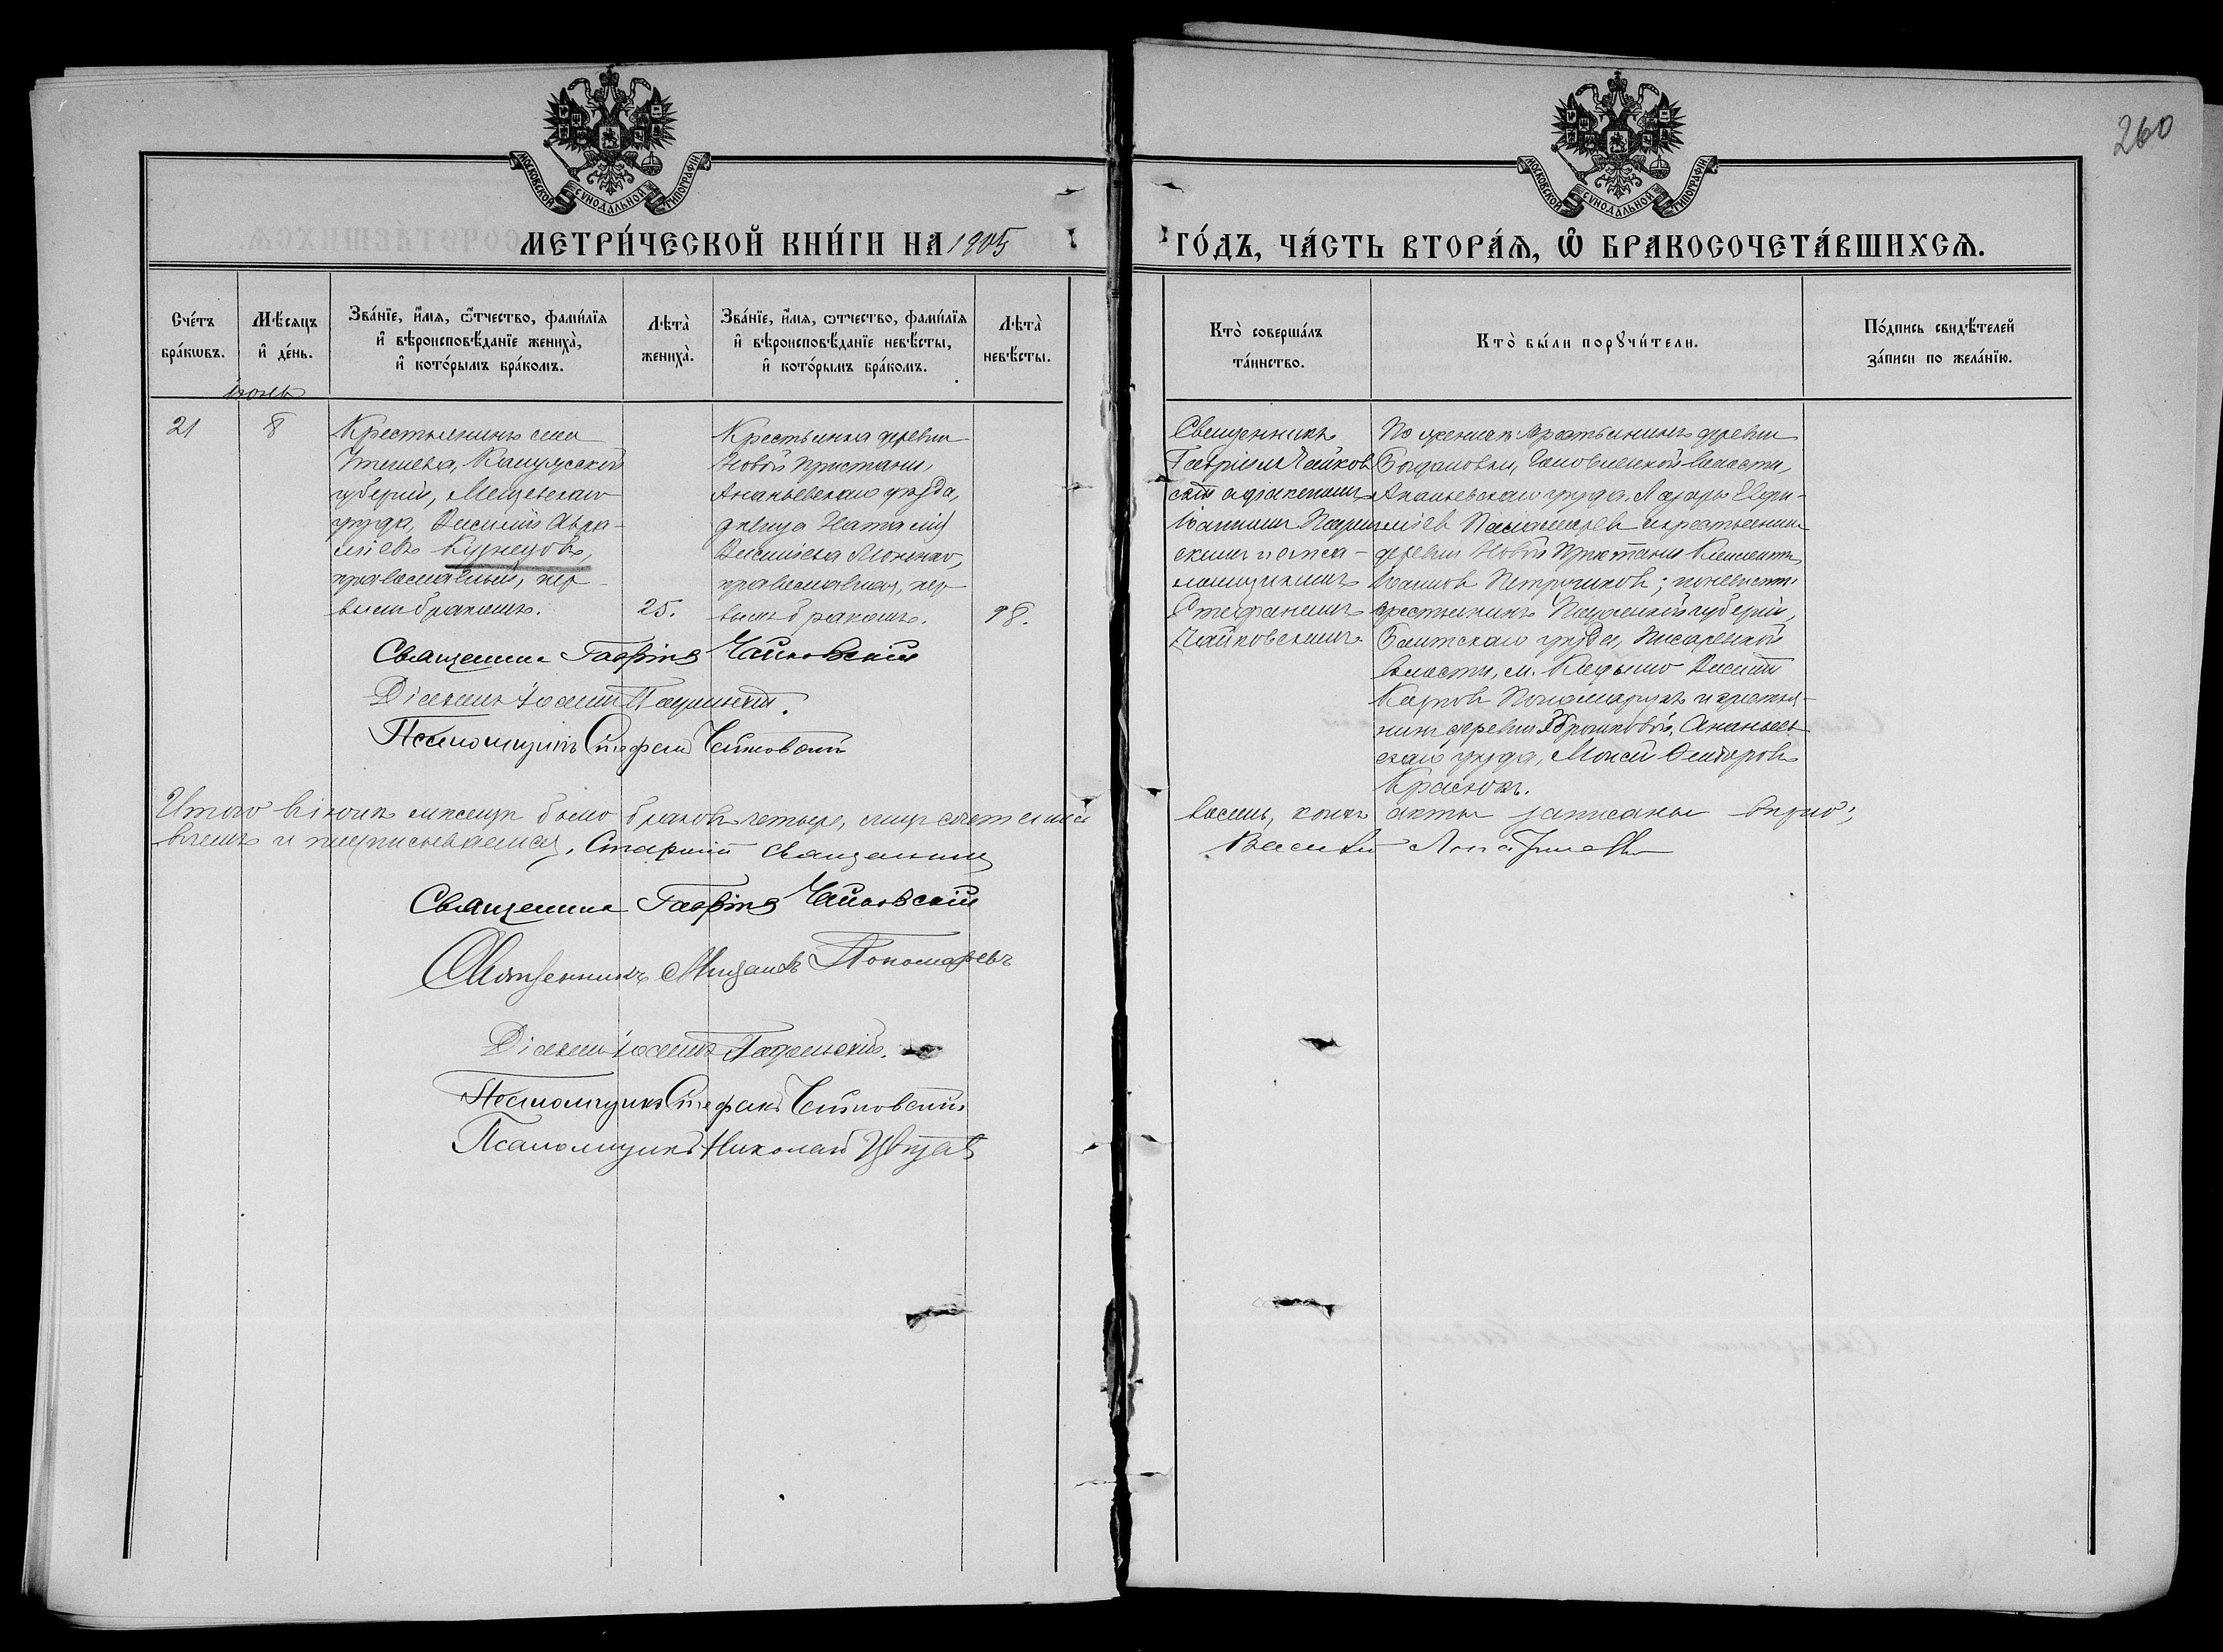 260
МОСКОВСКОЙ СѴНОДАЛЬНОЙ ТИПОГРАФІИ
МОСКОВСКОЙ СѴНОДАЛЬНОЙ ТИПОГРАФІИ
МЕТРИ́ЧЕСКОЙ КНИ́ГИ НА 1905
ГО́ДЪ, ЧА́СТЬ ВТОРА́Ѧ, Ѽ БРАКОСОЧЕТА́ВШИХСѦ.
Сче́тъ
бра́кѡвъ.
Мѣ́сѧцъ
и҆ де́нь.
Зва́нїе, и҆́мѧ, ѻ҆́тчество, фами́лїѧ
и҆ вѣроисповѣ́данїе жениха̀,
и҆ кото́рымъ бра́комъ.
Лѣта̀
жениха̀.
Зва́нїе, и҆́мѧ, ѻтчество, фами́лїѧ
и҆ вѣроисповѣ́данїе невѣ́сты,
и҆ кото́рымъ бра́комъ.
Лѣта̀
невѣ́сты.
Кто̀ соверша́лъ
та́инство.
Кто̀ бы́ли порꙋчи́тели.
По́дпись свидѣ́телей
за́писи по жела́нїю.
Іюнь
21
8
Крестьянинъ села
Калужской
губерніи, Мещевскаго
уѣзда, Василій Авра-
міевъ Кузнецовъ,
православный, пер-
вымъ бракомъ.
25.
Крестьянка деревни
Новой Пристани,
Ананьевскаго уѣзда,
дѣвица Наталія
Васильева
православная, пер-
вымъ бракомъ.
18.
Священникъ
Гавріилъ Чайков
скій съ діакономъ
Іоанномъ
скимъ и псал-
момщикомъ
Стефаномъ
Чайковскимъ.
По женихѣ: крестьянинъ деревни
Богдановки, волости,
Ананьевскаго уѣзда, Лазарь
и крестьянинъ
деревни Новой Пристани Климентъ
Іоанновъ по невѣстѣ:
крестьянинъ губерніи,
Балтскаго уѣзда, Писаревской
волости, м. Василій
Карповъ и крестья-
нинъ деревни Ананьев
скаго уѣзда, Моисей Ѳеодоровъ
Краснюкъ.
Священникъ Гавріилъ Чайковскій
Діаконъ Іоаннъ
Псаломщикъ Стефанъ Чайковскій
Итого въ іюнѣ мѣсяцѣ было браковъ четыре, лицъ сочетавши
восемь, коихъ акты записаны вѣрно,
въ чемъ и подписываемся, Старшій священникъ
Василій
Священникъ Гавріилъ Чайковскій
Священникъ Михаилъ Пономаревъ
Діаконъ Іоаннъ
Псаломщикъ Стефанъ Чайковскій
Псаломщикъ Николай